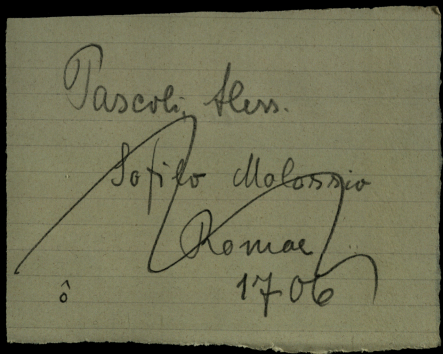 Pascoli, Aless.
Sofilo Molossio
Romae
ô 1706